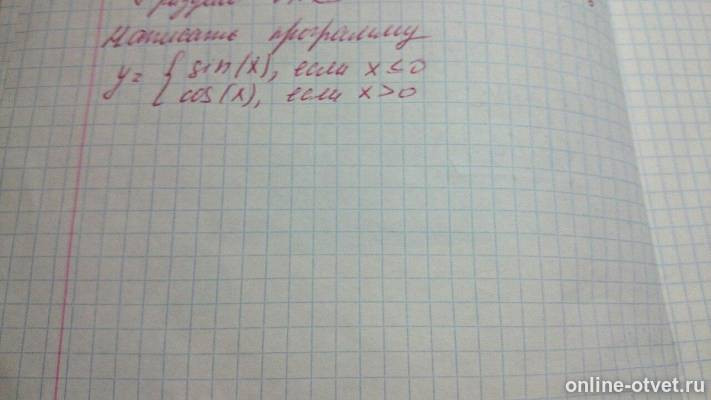 Написать программу
y = { sin(x), если x ≤ 0
cos(x), если x > 0
online-otvet.ru